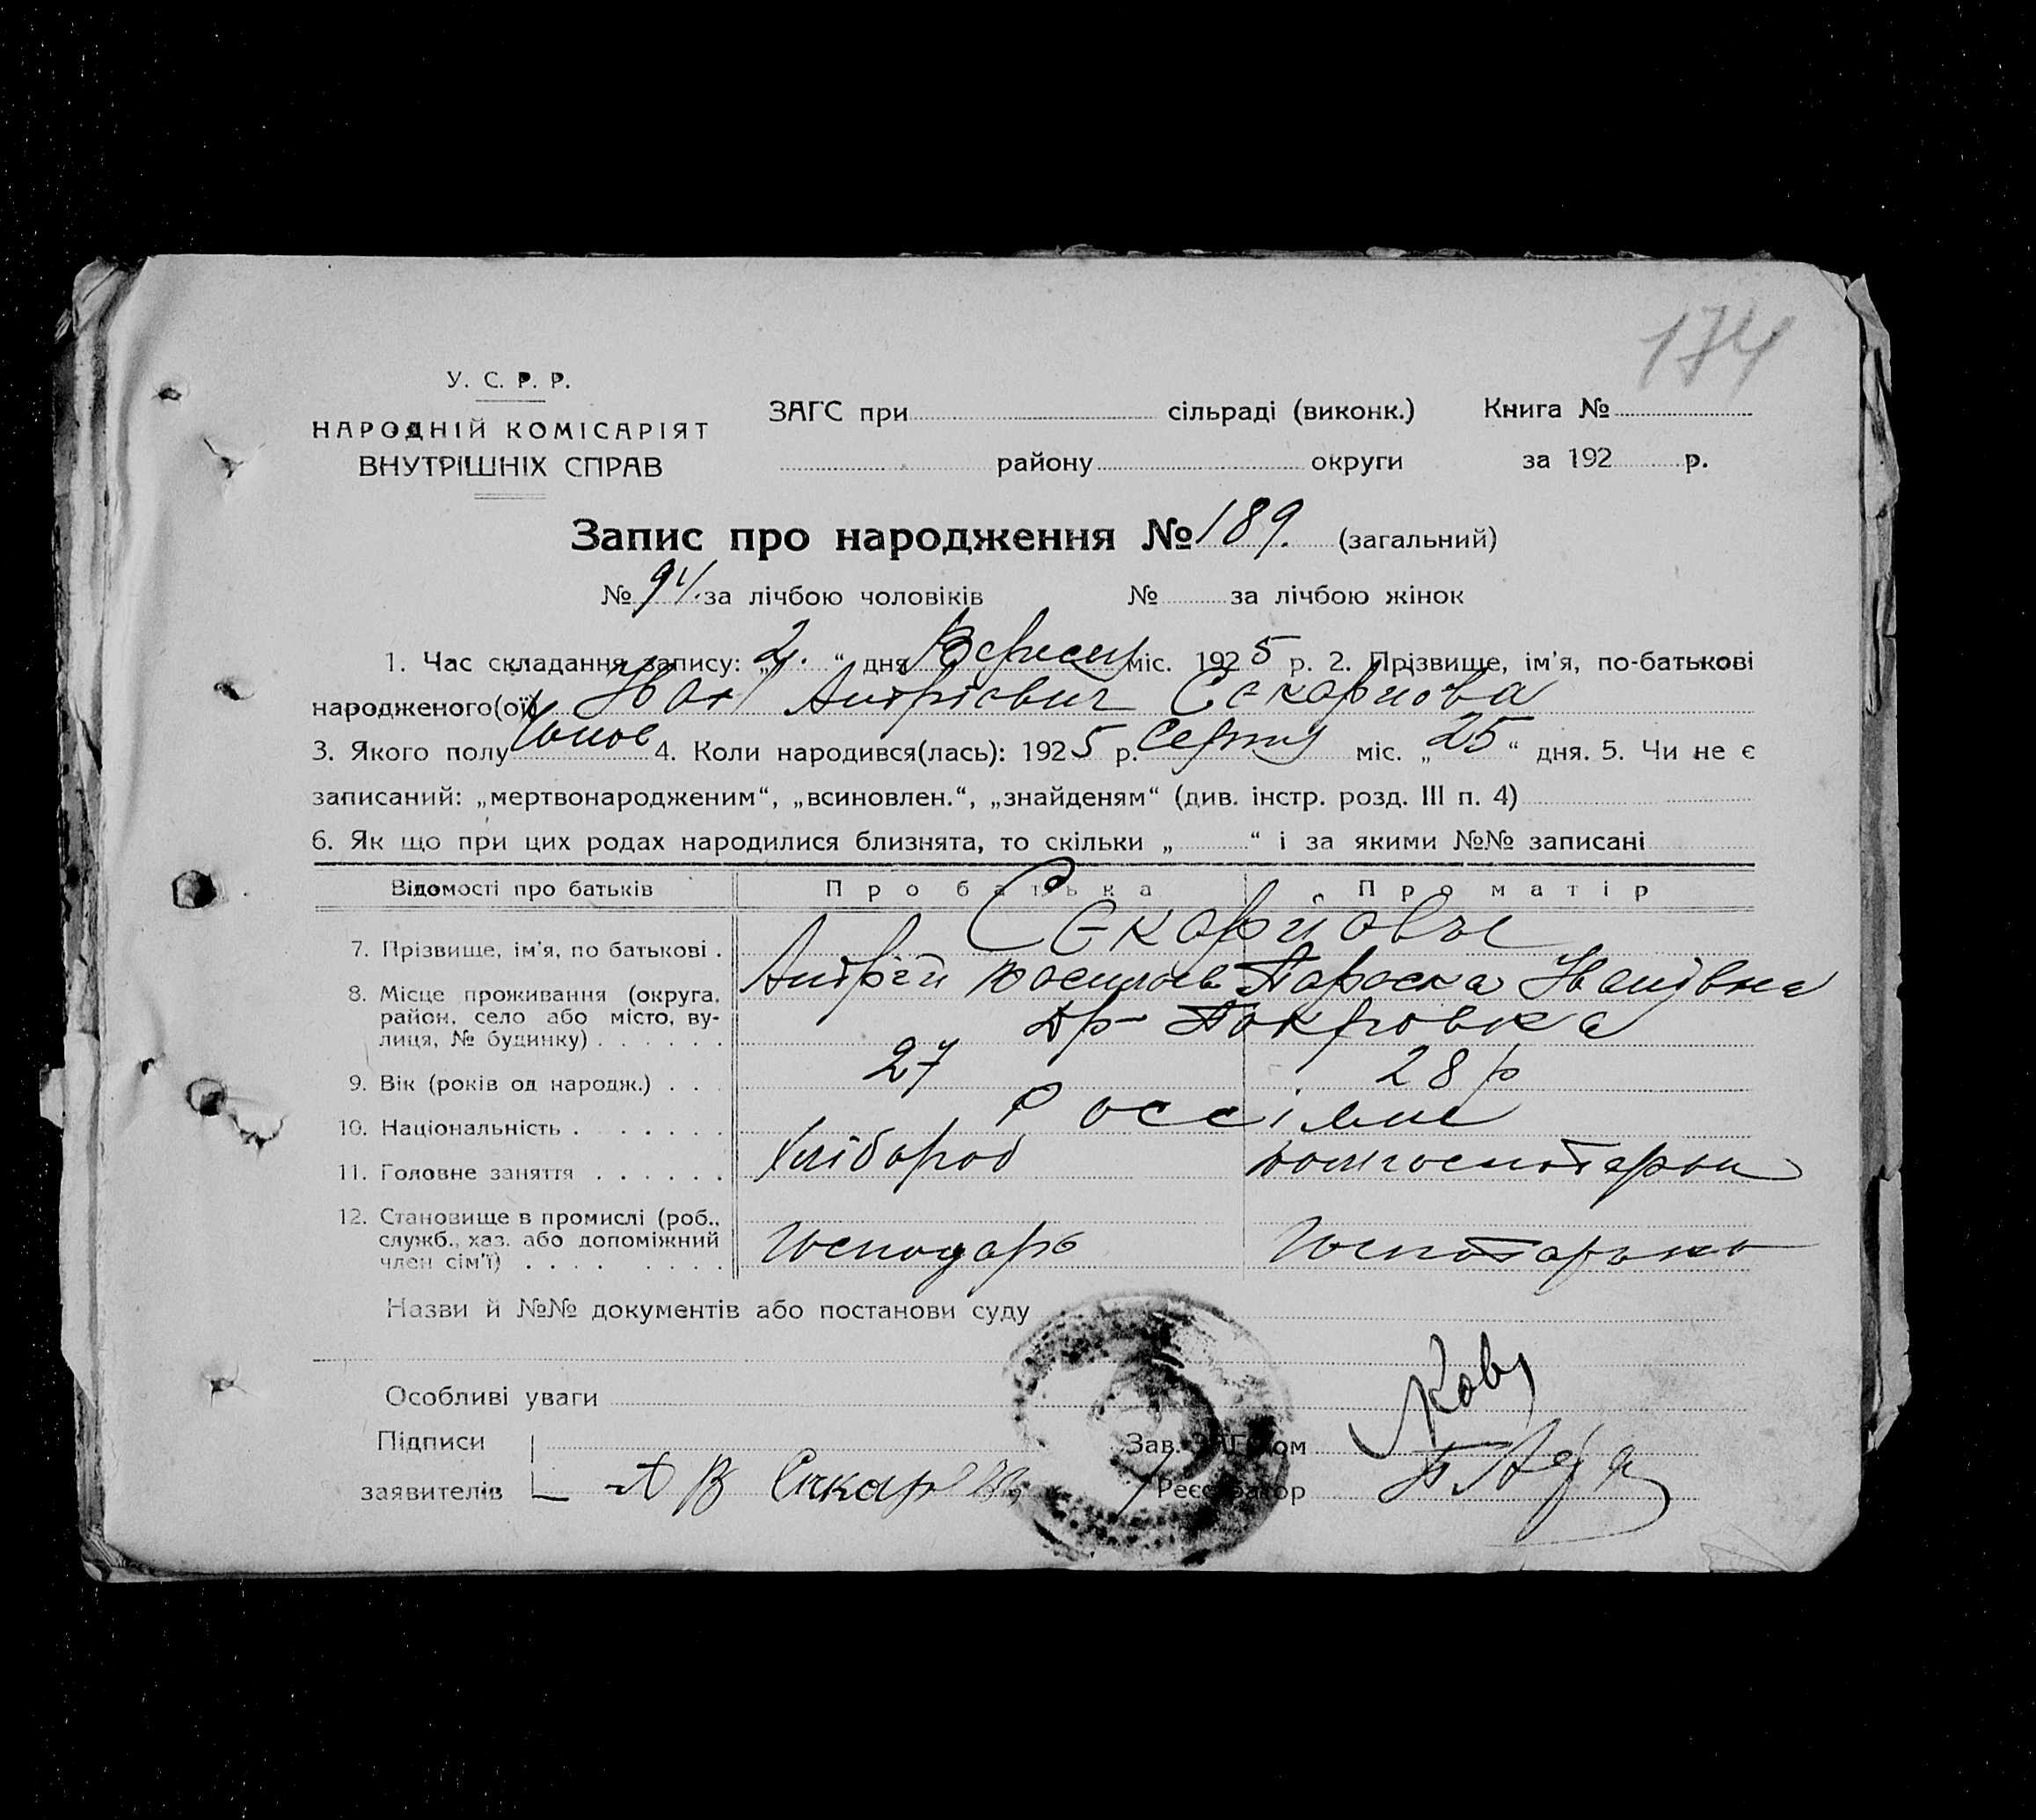 174
У. С. Р. Р.
НАРОДНІЙ КОМІСАРІЯТ
ВНУТРІШНІХ СПРАВ
ЗАГС при сільраді (виконк.) Книга №
району округи за 192 р.
Запис про народження № 189. (загальний)
№ 94. за лічбою чоловіків № за лічбою жінок
1. Час складання запису: „2.“ дня Вересня міс. 1925 р. 2. Прізвище, ім'я, по-батькові
народженого(ої) Іван Андрієвич
3. Якого полу 4. Коли народився(лась): 1925 р. Серпня міс. „25“ дня. 5. Чи не є
записаний: „мертвонародженим“, „всиновлен.“, „знайденям“ (див. інстр. розд. III п. 4)
6. Як що при цих родах народилися близнята, то скільки „ “ і за якими №№ записані
Відомості про батьків Про батька Про матір
7. Прізвище, ім'я, по батькові .
Андрій Параска Іванівна
8. Місце проживання (округа, район, село або місто, вулиця, № будинку) . . . . . . Покровка
9. Вік (років од народж.) . . . 27 28 р
10. Національність . . . . . .
11. Головне заняття . . . . . . Хлібороб
12. Становище в промислі (роб., служб., хаз. або допоміжний член сім'ї) . . . . . . . . Господарь
Назви й №№ документів або постанови суду
Особливі уваги
Підписи Зав. ЗАГС'ом
заявителів А В Реєстратор